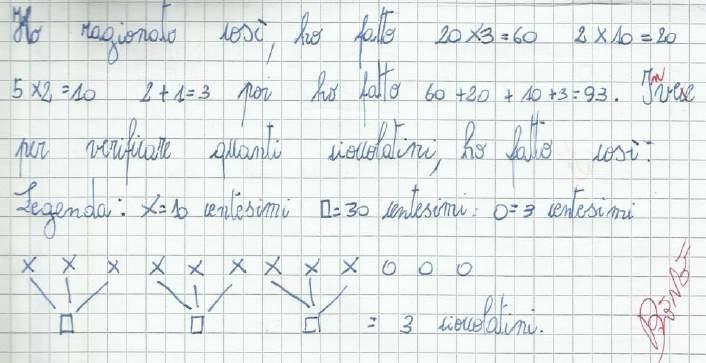 Ho ragionato così, ho fatto 20x3=60 2x10=20
5x2=10 2+1=3 poi ho fatto 60+20+10+3=93. Invese
per verificare quanti ciocolatini, ho fatto così:
Legenda: X=10 centesimi □=30 centesimi. O=3 centesimi
X X X X X X X X X O O O
□ □ □ = 3 cioccolatini.